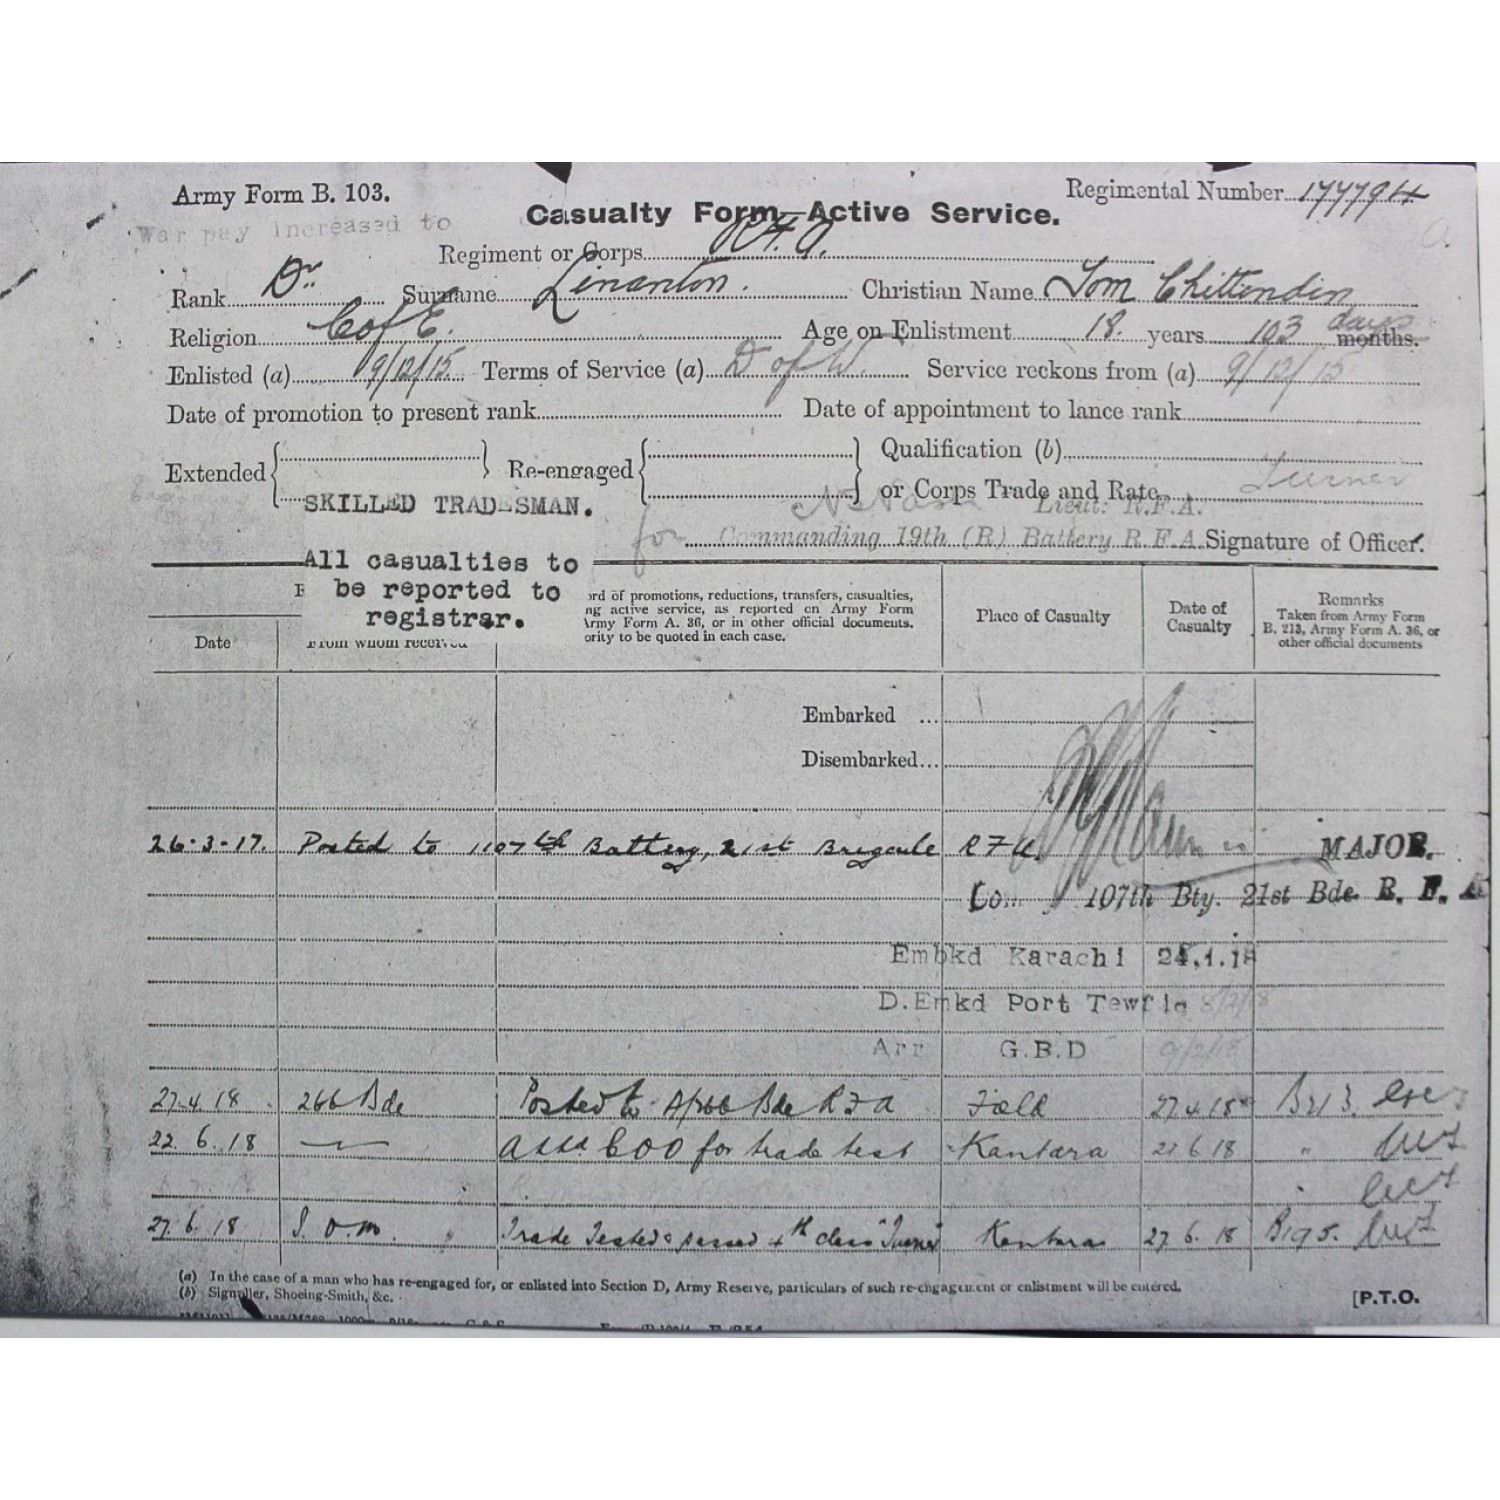 Army Form B. 103.
Regimental Number 177794
War pay increased to
Casualty Form—Active Service.
Regiment or Corps R.F.A.
Rank Dr Surname Linanton. Christian Name Tom Chittendin
Religion C of E. Age on Enlistment 18. years 103 days months.
Enlisted (a) 9/12/15 Terms of Service (a) D of W. Service reckons from (a) 9/12/15
Date of promotion to present rank Date of appointment to lance rank
Extended Re-engaged Qualification (b)
or Corps Trade and Rate Turner
SKILLED TRADESMAN.
Lieut: R.F.A.
for Commanding 19th (R) Battery R.F.A. Signature of Officer.
All casualties to
be reported to
registrar.
ord of promotions, reductions, transfers, casualties,
ng active service, as reported on Army Form
Army Form A. 36, or in other official documents.
ority to be quoted in each case.
Date From whom received
Place of Casualty
Date of
Casualty
Remarks
Taken from Army Form
B. 213, Army Form A. 36, or
other official documents
Embarked ...
Disembarked...
26.3.17. Posted to 1107th Battery, 21st Brigade R F A. MAJOR.
Com 107th Bty. 21st Bde R. F. A
Embkd Karachi 24.1.18
D.Emkd Port Tewfiq 8/2/18
Arr G.B.D 9/2/18
27.4.18 266 Bde Posted to A/266 Bde R F A Field 27.4.18 B213.
22.6.18 — Attd COO for trade test Kantara 22 6 18 "
27.6.18 I.O.M. Trade Tested & passed 4th class "Turner" Kantara 27 6. 18 B195.
(a) In the case of a man who has re-engaged for, or enlisted into Section D, Army Reserve, particulars of such re-engagement or enlistment will be entered.
(b) Signaller, Shoeing-Smith, &c.
[P.T.O.